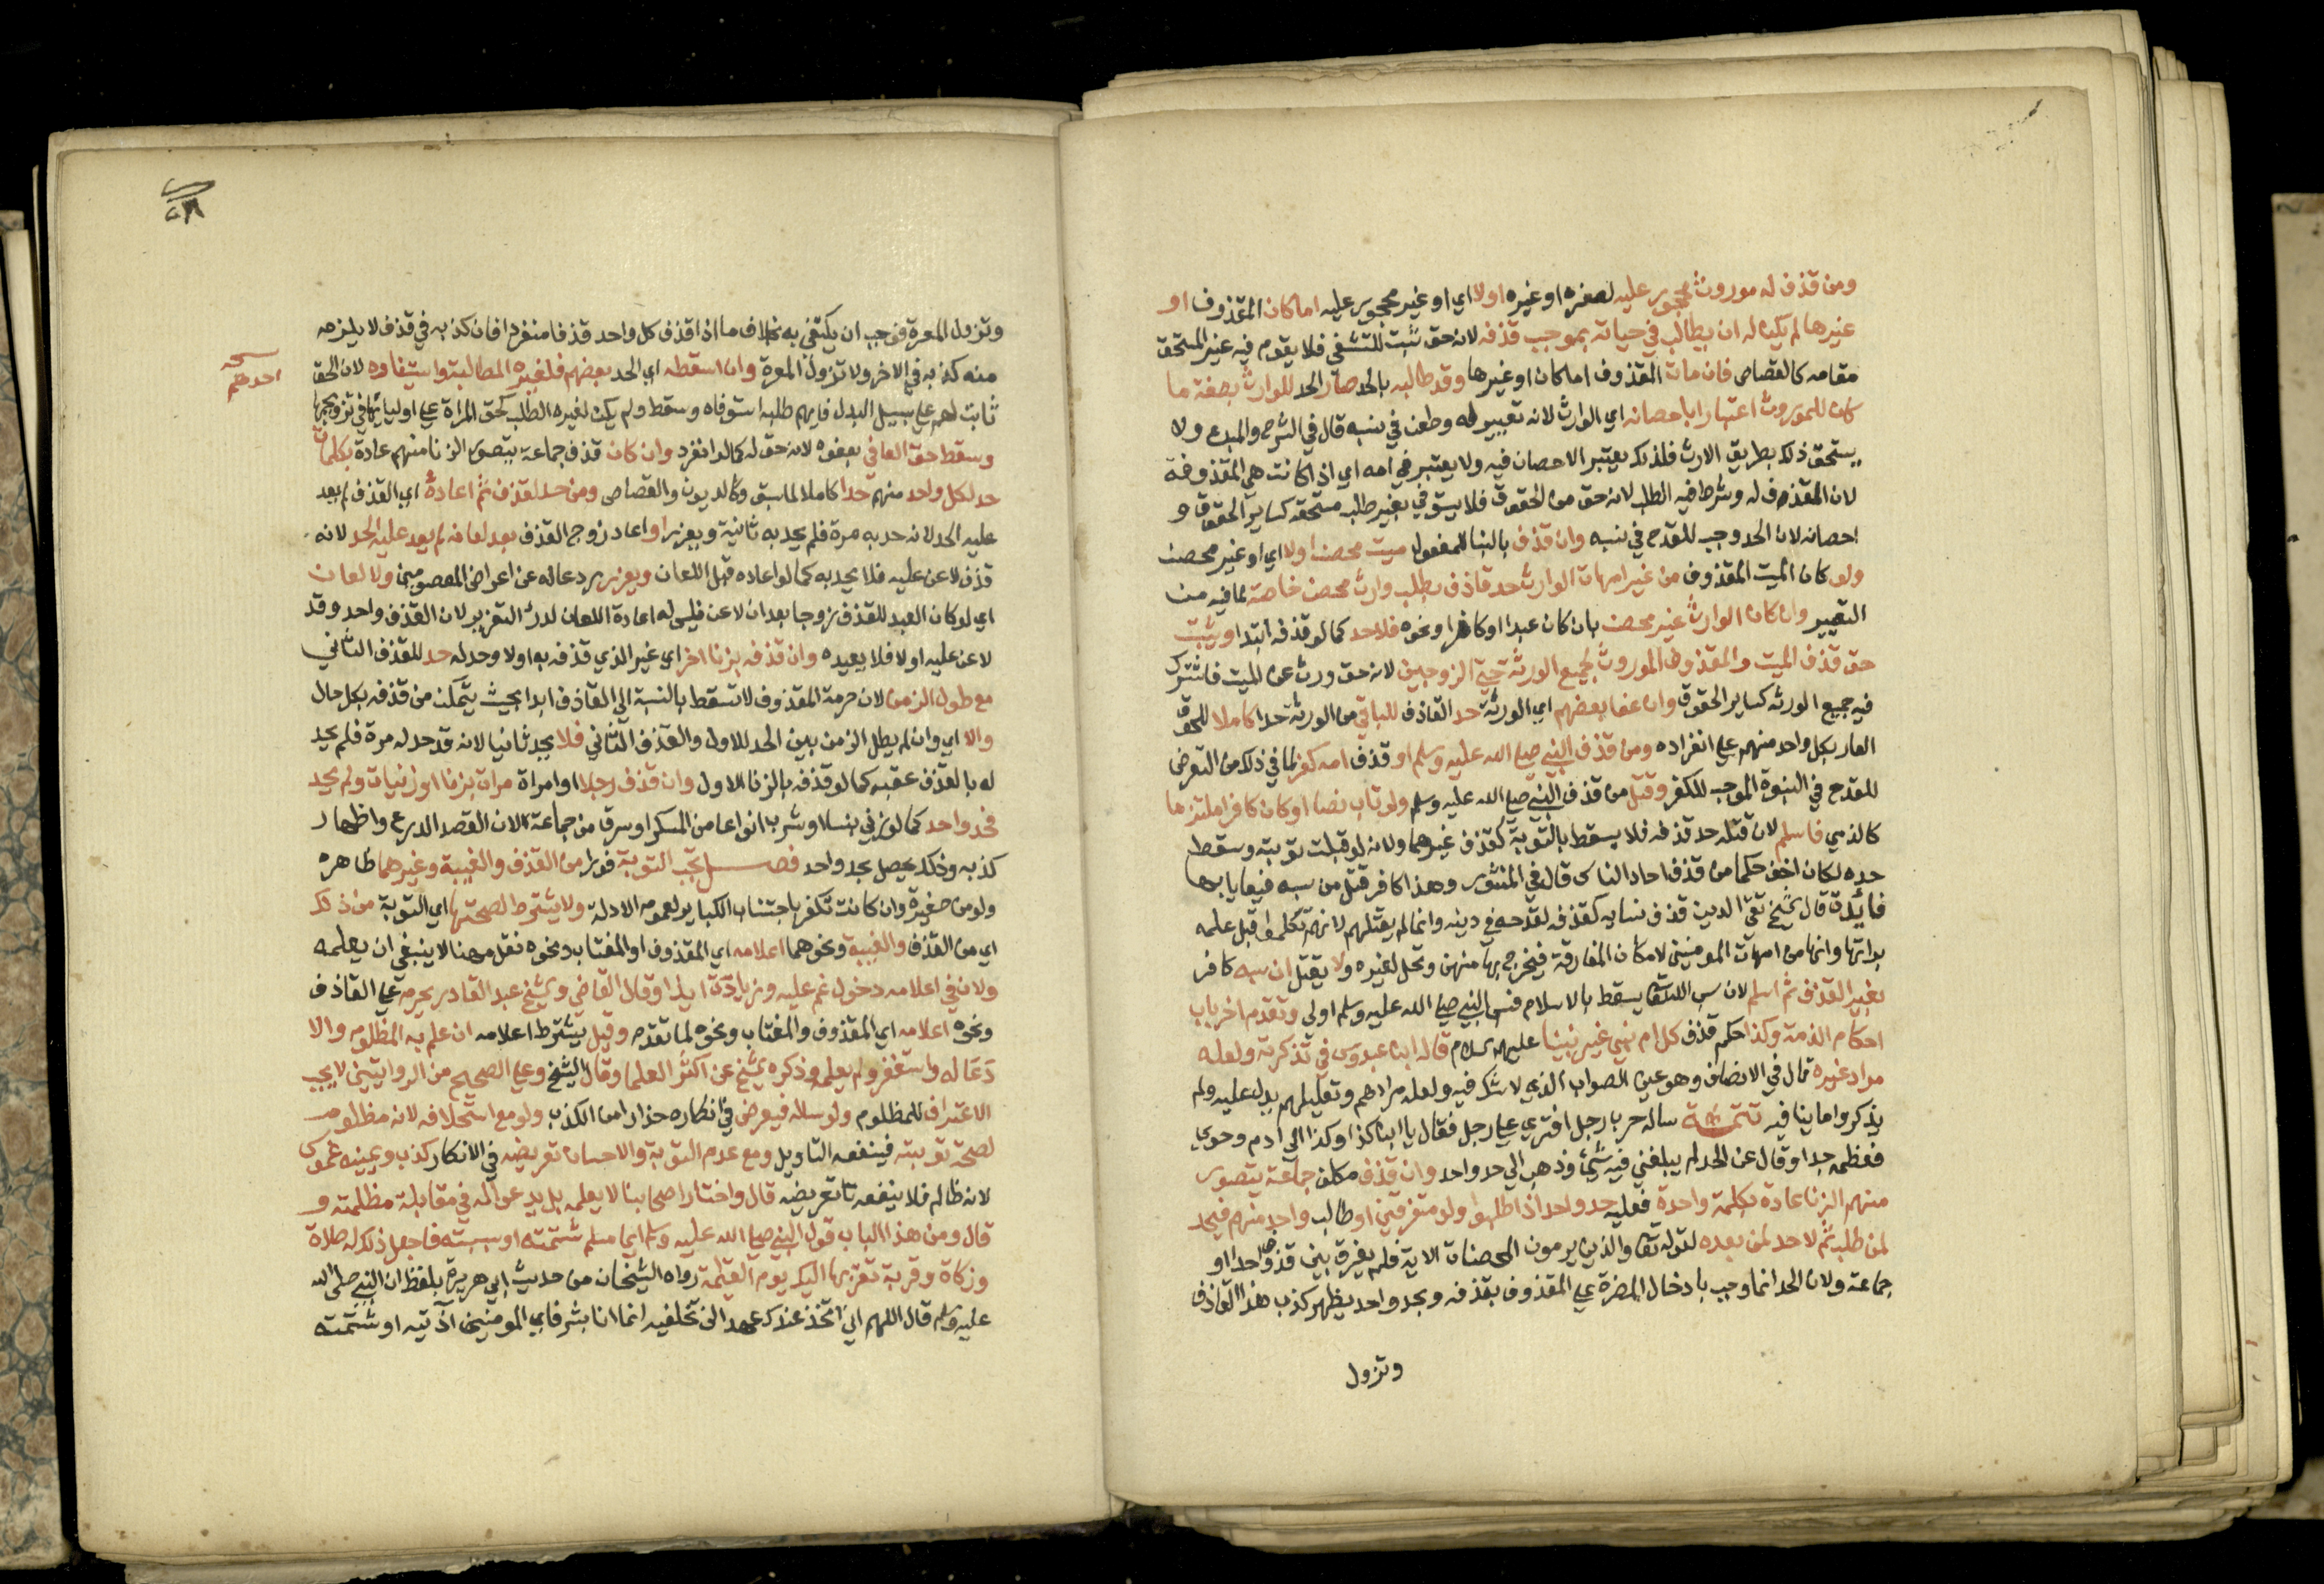 ومن قذف له موروث محجور عليه لصغره او غيره اولا اي او غير محجور عليه اما كان المقذوف او
غيرها لم يكن له ان يطالب في حياته بموجب قذفه لانه حق ثبت للتشفي فلا يقوم فيه غير المستحق
مقامه كالقصاص فان مات المقذوف اما كان او غيرها وقد طالبه بالحد صار الحد للوارث بصفة ما
كان للموروث اعتبارا باحصانه اي الوارث لانه تعيير له وطعن في نسبه قال في الشرح والمبدع ولا
يستحق ذلك بطريق الارث فلذلك يعتبر الاحصان فيه ولا يعتبر في امه اي اذا كانت هي المقذوفة
لان المقذوف له وشرط فيه الطلب لانه حق من الحقوق فلا يستوفى بغير طلب مستحقه كساير الحقوق و
احصانه لان الحد وجب للقدح في نسبه وان قذف بالبنا للمفعول ميت محصنا اولا اي او غير محصن
ولو كان الميت المقذوف من غير امهات الوارث حد قاذف بطلب وارث محصن خاصة لما فيه من
التعيير وان كان الوارث غير محصن بان كان عبدا او كافرا ونحوه فلا حد كما لو قذفه ابتدا ويثبت
حق قذف الميت والمقذوف الموروث لجميع الورثة حتى الزوجين لانه حق ورث عن الميت فاشترك
فيه جميع الورثه كساير الحقوق وان عفا بعضهم اي الورثة حد القاذف للباقي من الورثة حدا كاملا للحوق
العار بكل واحد منهم على انفراده ومن قذف النبي صلى الله عليه وسلم او قذف امه كفر لما في ذلك من التعرض
للقدح في النبوة الموجب للكفر وقتل من قذف النبي صلى الله عليه وسلم ولو تاب نصا او كان كافرا ملتزما
كالذمي فاسلم لان قتله حد قذفه فلا يسقط بالتوبة كقذف غيرهما ولانه لو قبلت توبته وسقط
حده لكان اخف حكما من قذف احاد الناس قال في المنثور وهذا كافر قتل من سبه فيعايا بها
فايدة قال الشيخ تقي الدين قذف نسايه كقذفه لقدحه في دينه وانما لم يقتلهم لانهم تكلموا قبل علمه
ببراتها وانها من امهات المومنين لامكان المفارقة فتخرج بها منهن وتحل لغيره ولا يقتل ان سبه كافر
بغير القذف ثم اسلم لان سب الله تعالى يسقط بالاسلام فسب النبي صلى الله عليه وسلم اولى وتقدم اخر باب
احكام الذمة وكذا حكم قذف كل ام نبي غير نبينا عليهم السلام قاله ابن عبدوس في تذكرته ولعله
مراد غيره قال في الانصاف وهو عين الصواب الذي لا شك فيه ولعله مرادهم وتعليلهم يدل عليه ولم
يذكروا ما ينافيه تتمة ساله حرب رجل افترى على رجل فقال يا ابن كذا وكذا الى ادم وحوى
فعظمه جدا وقال عن الحد لم يبلغني فيه شيئا وذهب الى حد واحد وان قذف مكلف جماعة يتصور
منهم الزنا عادة بكلمة واحدة فعليه حد واحد اذا طلبوا ولو متفرقين او طالب واحد منهم فيحد
لمن طلب ثم لا حد لمن بعده لقوله تعالى والذين يرمون المحصنات الاية فلم يفرق بين قذف واحد او
جماعة ولان الحد انما وجب بادخال المضرة على المقذوف بقذفه وبحد واحد يظهر كذب هذا القاذف
وتزول
وتزول المعرة فوجب ان يكتفى به بخلاف ما اذا قذف كل واحد قذفا منفردا فان كذبه في قذف لا يلزمه
منه كذبه في الاخر ولا تزول المعرة وان اسقطه اي الحد بعضهم فلغيره المطالبة واستيفاوه لان الحق
نسخه احدهم
ثابت لهم على سبيل البدل فايهم طلبه استوفاه وسقط ولم يكن لغيره الطلب كحق المراة على اوليائها في تزويجها
وسقط حق العافي بعفوه لانه حق له كما لو انفرد وان كان قذف جماعة يتصور الزنا منهم عادة بكلمات
حد لكل واحد منهم حدا كاملا لما سبق وكالديون والقصاص ومن حد لقذف ثم اعاده اي القذف لم يعد
عليه الحد لانه حد به مرة فلم يحد به ثانية ويعزر او اعاد زوج القذف بعد لعانه لم يعد عليه الحد لانه
قذف لاعن عليه فلا يحد به كما لو اعاده قبل اللعان ويعزر ردعا له عن اعراض المعصومين ولا لعان
اي لو كان العيد للقذف زوجا بعد ان لاعن فليس له اعادة اللعان لدرء التعزير لان القذف واحد وقد
لاعن عليه اولا فلا يعيده وان قذفه بزنا اخر اي غير الذي قذفه به اولا وحد له حد للقذف الثاني
مع طول الزمن لان حرمة المقذوف لا تسقط بالنسبة الى القاذف ابدا بحيث يتمكن من قذفه بكل حال
والا اي وان لم يطل الزمن بين الحد للاول والقذف الثاني فلا يحد ثانيا لانه قد حد له مرة فلم يحد
له بالقذف عقبه كما لو قذفه بالزنا الاول وان قذف رجلا او امراة مرات بزنا او زنيات ولم يحد
فحد واحد كما لو زنى بنسا او شرب انواعا من المسكر او سرق من جماعة لان القصد الردع واظهار
كذبه وذلك يحصل بحد واحد فصل تجب التوبة فورا من القذف والغيبة وغيرهما ظاهره
ولو من صغيرة وان كانت تكفر باجتناب الكباير لعموم الادلة ولا يشترط لصحتها اي التوبة من ذلك
اي من القذف والغيبة ونحوهما اعلامه اي المقذوف او المغتاب ونحوه نقل مهنا لا ينبغي ان يعلمه
ولان في اعلامه دخول غم عليه وزيادة ايذا وقال القاضي والشيخ عبد القادر يحرم على القاذف
ونحوه اعلامه اي المقذوف والمغتاب ونحوه لما تقدم وقيل يشترط اعلامه ان علم به المظلوم والا
دعا له واستغفر ولم يعلمه وذكره الشيخ عن اكثر العلما وقال الشيخ وعلى الصحيح من الروايتين لا يجب
الاعتراف للمظلوم ولو ساله فيعرض في انكاره حذارا من الكذب ولو مع استحلافه لانه مظلوم
لصحة توبته فينفعه التاويل ومع عدم التوبة والاحسان تعريضه في الانكار كذب ويمينه غموس
لانه ظالم فلا ينفعه تعريضه قال واختار اصحابنا لا يعلمه بل يدعو له في مقابلة مظلمته و
قال ومن هذا الباب قول النبي صلى الله عليه وسلم ايما مسلم شتمته او سببته فاجعل ذلك له صلاة
وزكاة وقربة تقربه بها اليك يوم القيمة رواه الشيخان من حديث ابي هريرة بلفظ ان النبي صلى الله
عليه وسلم قال اللهم اني اتخذ عندك عهدا لن تخلفنيه انما انا بشر فاي المومنين اذيته او شتمته